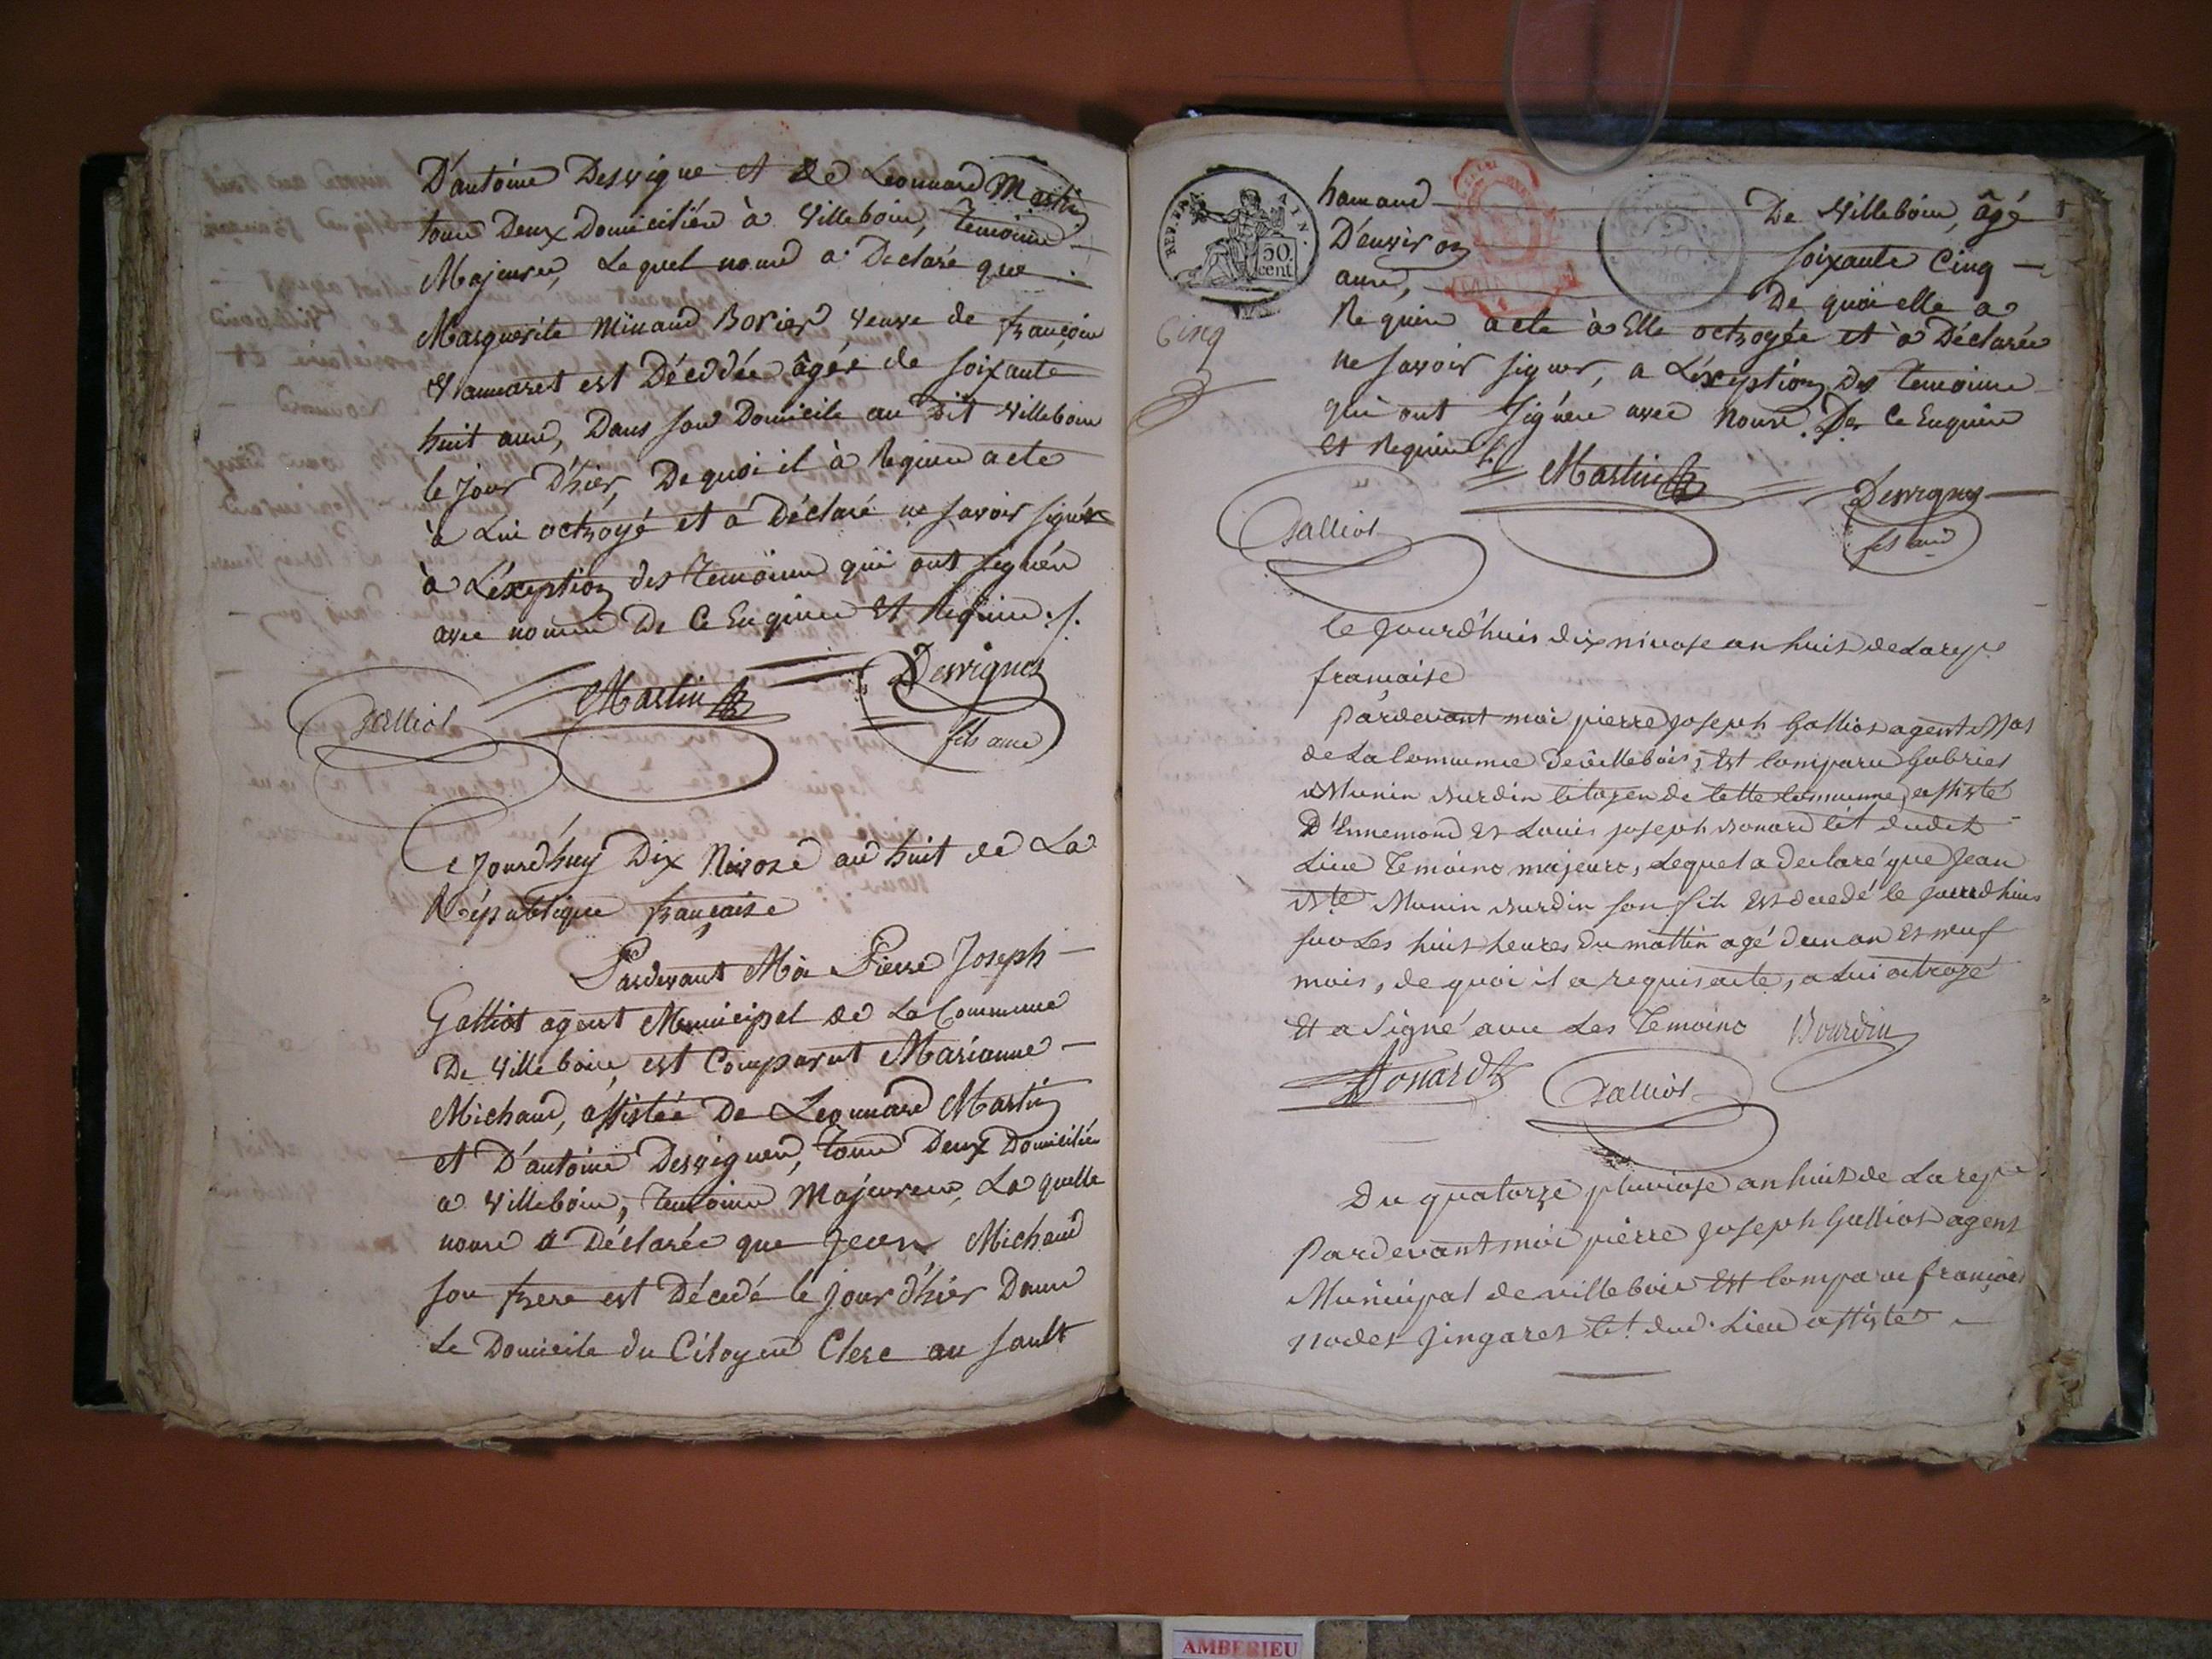 D'antoine Desvigne et de Leonnard Martin
tous Deux Domiciliés à Villebois, temoins
Majeurs, Lequel nous a Declaré que
Marguerite Minand Borier veuve de françois
Vannaret est Décédée âgée de soixante
huit ans, Dans son Domicile au Dit Villebois
le jour D'hier, De quoi il à Requis acte
à Lui octroyé et a Déclaré ne savoir signér
à L'éxception des temoins qui ont signés
avec nous De Ce Enquis et Requis ./.
Galliot Martin Desvignes
fils ainé
Ce Jourd'huy Dix Nivose an huit de La
République française
Pardevant Moi Pierre Joseph
Galliot agent Municipal de La Commune
De Villebois, est Comparut Marianne
Michaud, assistée De Leonnard Martin
et D'antoine Desvignes, tous Deux Domiciliés
a Villebois, temoins Majeurs, La quelle
nous a Déclarée que Jean Michaud
son frere est Décedé le jour d'hier Dans
Le Domicile du Citoyen Clerc au sault
REP. FRA 50. cent
Cinq
hameau De Villebois, âgé
D'environ soixante Cinq
ans, De quoi elle a
Requis acte à Elle octroyée et à Déclarée
ne savoir signer, a L'éxception Des temoins
qui ont signés avec nous. De Ce Enquis
et Requis ./.
Galliot Martin Desvignes
fils ainé
Ce Jourdhuis dix nivose an huit de La repe
francaise
pardevant moi pierre joseph Galliot agent
de La Commune de villebois, Est Comparu Gabriel
Munin Citoyen de Cette Commune, assisté
D'Ennemond Et Louis joseph Bonard Cit dudit
Lieu Temoins majeurs, Lequel a declaré que Jean
Bte Munin Burdin son fils Est decedé le jourdhuis
sur Les huit heures Du mattin agé dun an Et neuf
mois, de quoi il a requis acte, a Lui octroyé
Et a Signé avec Les Temoins Bourdin
Bonard Galliot
Du quatorze pluviose an huit de La repe
Pardevant moi pierre joseph Galliot agent
Municipal de villebois Est Comparu françois
nodet Gingaret Cit. dud. Lieu assisté
AMBERIEU